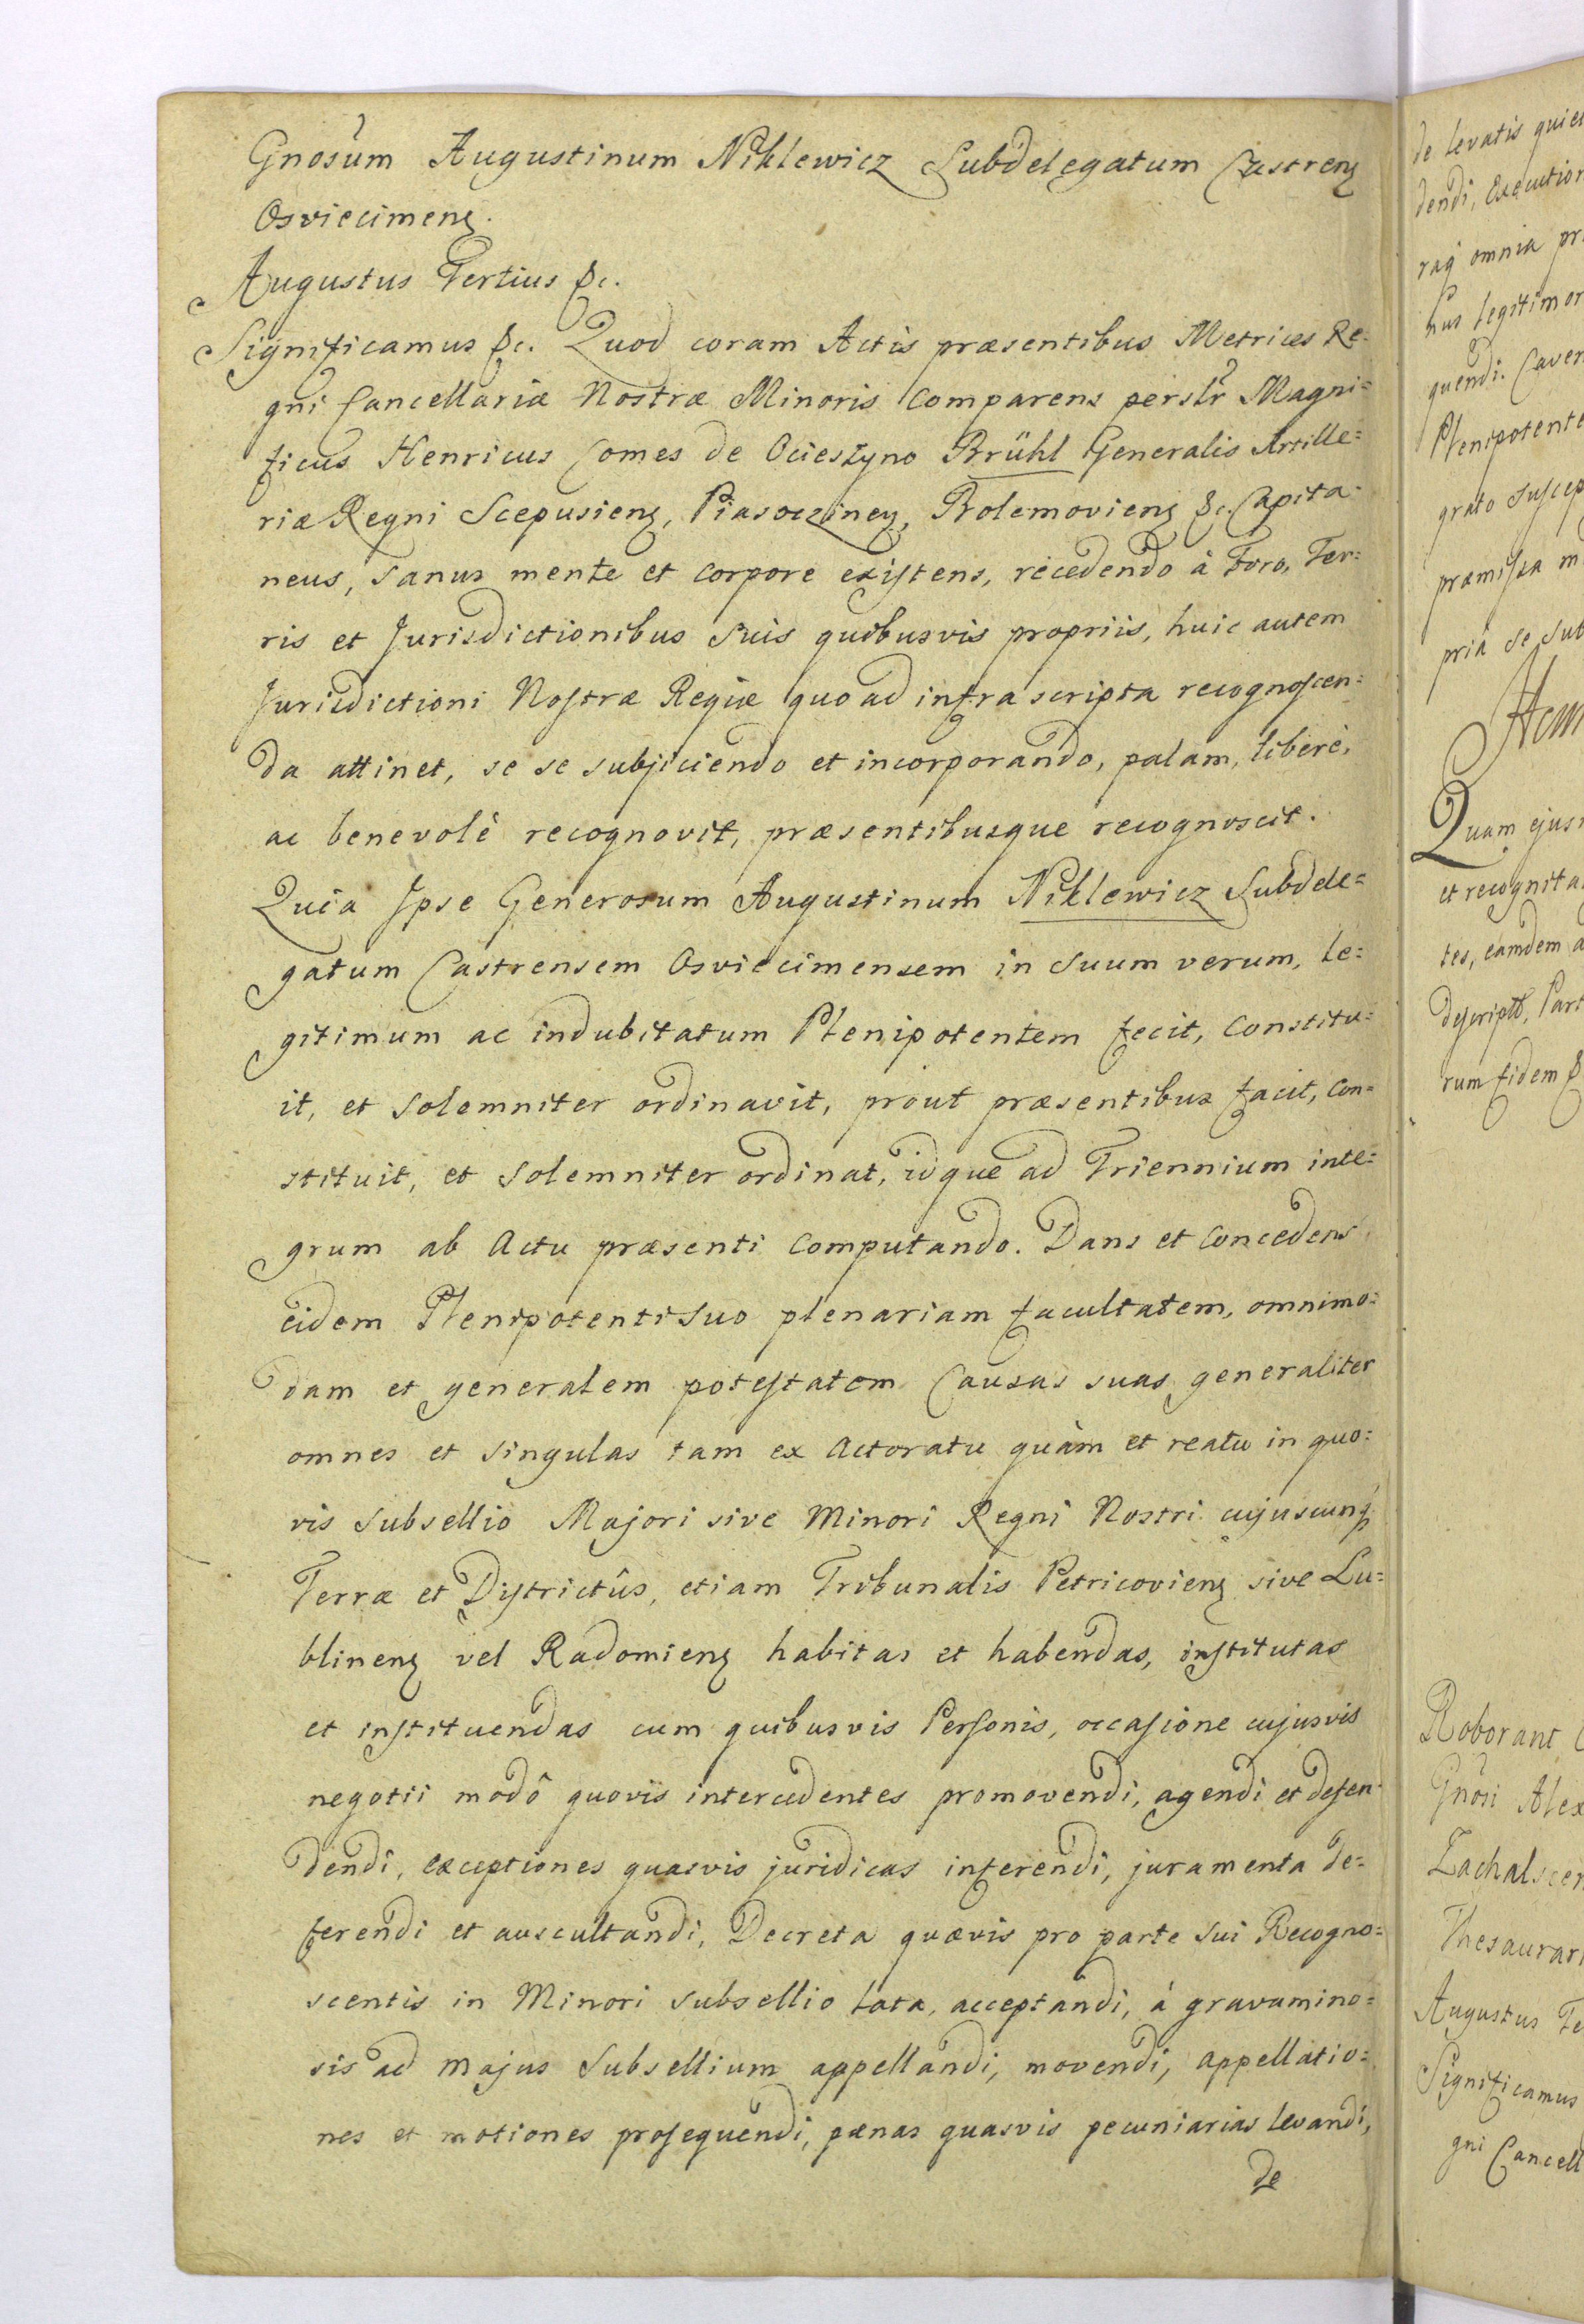 Gnosum Augustinum Niklewicz Subdelegatum Castrenẜ
Osviecimenẜ.
Augustus Tertius &c.
Significamus &c. Quod coram Actis præsentibus Metrices Re=
gni Cancellariæ Nostræ Minoris Comparens perslr Magni=
ficus Henricus Comes de Ocieszyno Brühl Generalis Artille=
riæ Regni Scepusienẜ, Piasoczinenẜ, Bolemovienẜ &c. Capita=
neus, sanus mente et corpore existens, recedendo à Foro, Ter=
ris et Jurisdictionibus suis quibusvis propriis, huic autem
Jurisdictioni Nostræ Regiæ quo ad infra scripta recognoscen=
da attinet, se se subjiciendo et incorporando, palam, liberè,
ac benevolè recognovit, præsentibusque recognoscit.
Quia Ipse Generosum Augustinum Niklewicz Subdele=
gatum Castrensem Osviecimensem in Suum verum, le=
gitimum ac indubitatum Plenipotentem fecit, Constitu=
it, et Solemniter ordinavit, prout præsentibus facit, con=
stituit, et Solemniter ordinat, idque ad Triennium inte=
grum ab Actu præsenti Computando. Dans et Concedens
eidem Plenipotenti suo plenariam facultatem, omnimo=
dam et generalem potestatem Causas suas generaliter
omnes et singulas tam ex Actoratu quàm et reatu in quo=
vis Subsellio Majori sive Minori Regni Nostri cujuscunq
Terræ et Districtûs, etiam Tribunalis Petricovienẜ sive Lu=
blinenẜ vel Radomienẜ habitas et habendas, institutas
et instituendas cum quibusvis Personis, occasione cujusvis
negotii modô quovis intercedentes promovendi, agendi et defen=
dendi, exceptiones quasvis juridicas inferendi, juramenta de=
ferendi et auscultandi, Decreta quævis pro parte sui Recogno=
scentis in Minori Subsellio lata, acceptandi, à gravamino=
sis ad Majus Subsellium appellandi, movendi, appellatio=
nes et motiones prosequendi, pænas quasvis pecuniarias levandi,
de
de levatis quie
dendi, Execution
raq omnia pr
nus legitimor
quendi. Caven
Plenipotente
grato suscep
præmissa m
priâ se sub
Quam ejus
et recognita
tes, eamdem a
descript, Part
rum fidem &
Roborant C
Gnosi Alex
Zachalscen
Thesaurari
Augustus Te
Significamus
gni Cancell